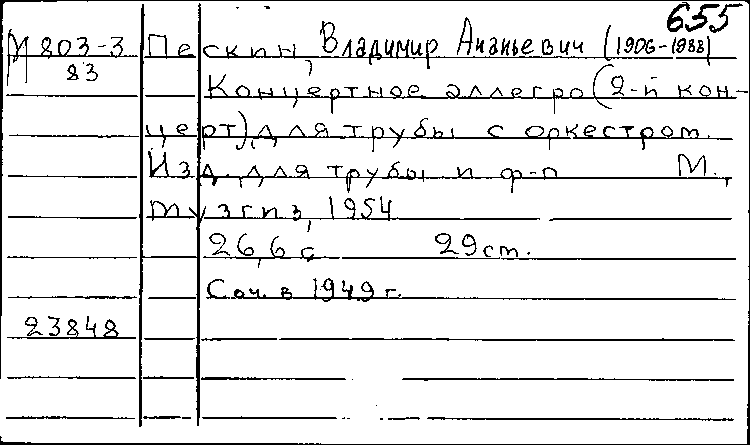 655
М 803-3 Пескин, Владимир Ананьевич (1906-1988)
83
Концертное аллегро (2-й кон-
церт), для трубы с оркестром.
Изд. для трубы и ф-п М.,
Музгиз, 1954
26, 6 с 29 см.
Соч. в 1949 г.
23848